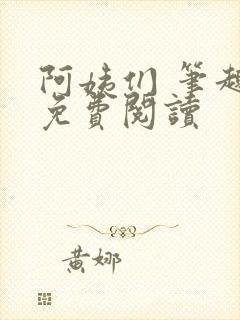 阿姨们 筆趣
免費閱讀
黄娜